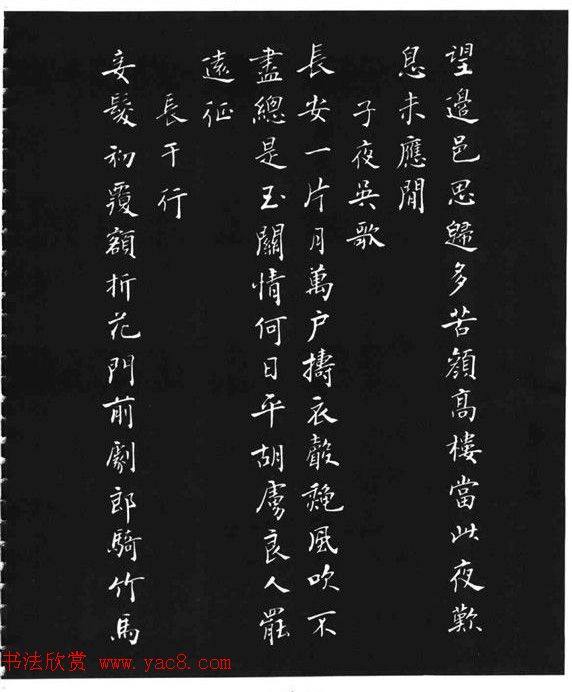 望邉邑思歸多苦顔高樓當此夜歎
息未應閒
子夜吳歌
長安一片月萬户擣衣聲秋風吹不
盡總是玉關情何日平胡虜良人罷
遠征
長干行
妾髮初覆額折花門前劇郎騎竹馬
书法欣赏 www.yac8.com